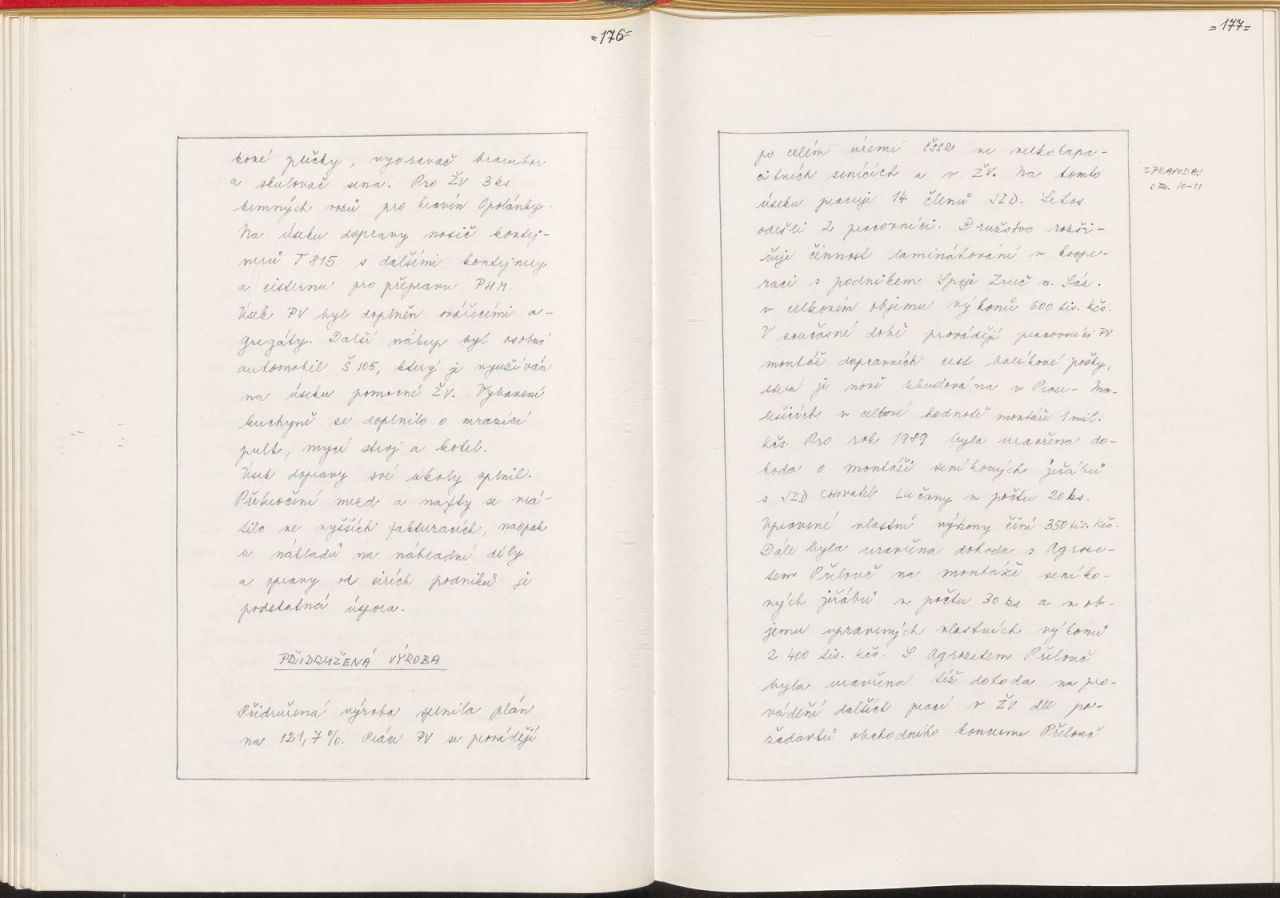 =176=
kové plečky, vyoravač brambor
a shulovač sena. Pro ŽV 3 ks
krmných vozů pro kravín Opolánky.
Na úseku dopravy nosič kontej-
nerů T 815 s dalšími kontejnery
a cisternu pro přepravu PHM.
Úsek PV byl doplněn svářecími a-
gregáty. Další nákup byl osobní
automobil Š 105, který je využíván
na úseku pomocné ŽV. Vybavení
kuchyně se doplnilo o mrazící
pult, mycí stroj a kotel.
Úsek dopravy své úkoly splnil.
Překročení mezd a nafty se vrá-
tilo ve vyšších fakturacích, naopak
u nákladů na náhradní díly
a opravy od cizích podniků je
podstatná úspora.
PŘIDRUŽENÁ VÝROBA
Přidružená výroba splnila plán
na 121,7 %. Práce PV se provádějí
=177=
po celém území ČSSR ve velkokapa-
citních senících a v ŽV. Na tomto
úseku pracuje 14 členů JZD. Letos
odešli 2 pracovníci. Družstvo rozši-
řuje činnost laminátování v koope-
raci s podnikem Spoje Zruč n. Sáz.
v celkovém objemu výkonů 600 tis. Kčs.
V současné době provádějí pracovníci PV
montáž dopravních cest balíkové pošty,
která je nově zbudována v Praze - Ma-
lešicích v celkové hodnotě montáže 1 mil.
Kčs. Pro rok 1989 byla uzavřena do-
hoda o montáži seníkových jeřábů
s JZD Chovatel Lučany v počtu 20 ks.
Upravené vlastní výkony činí 350 tis. Kčs.
Dále byla uzavřena dohoda s Agroze-
tem Přelouč na montáže seníko-
vých jeřábů v počtu 30 ks a v ob-
jemu upravených vlastních výkonů
2 400 tis. Kčs. S Agrozetem Přelouč
byla uzavřena též dohoda na pro-
vádění dalších prací v ŽV dle po-
žadavků obchodního koncernu Přelouč
ZPRAVODAJ
STR. 10-11